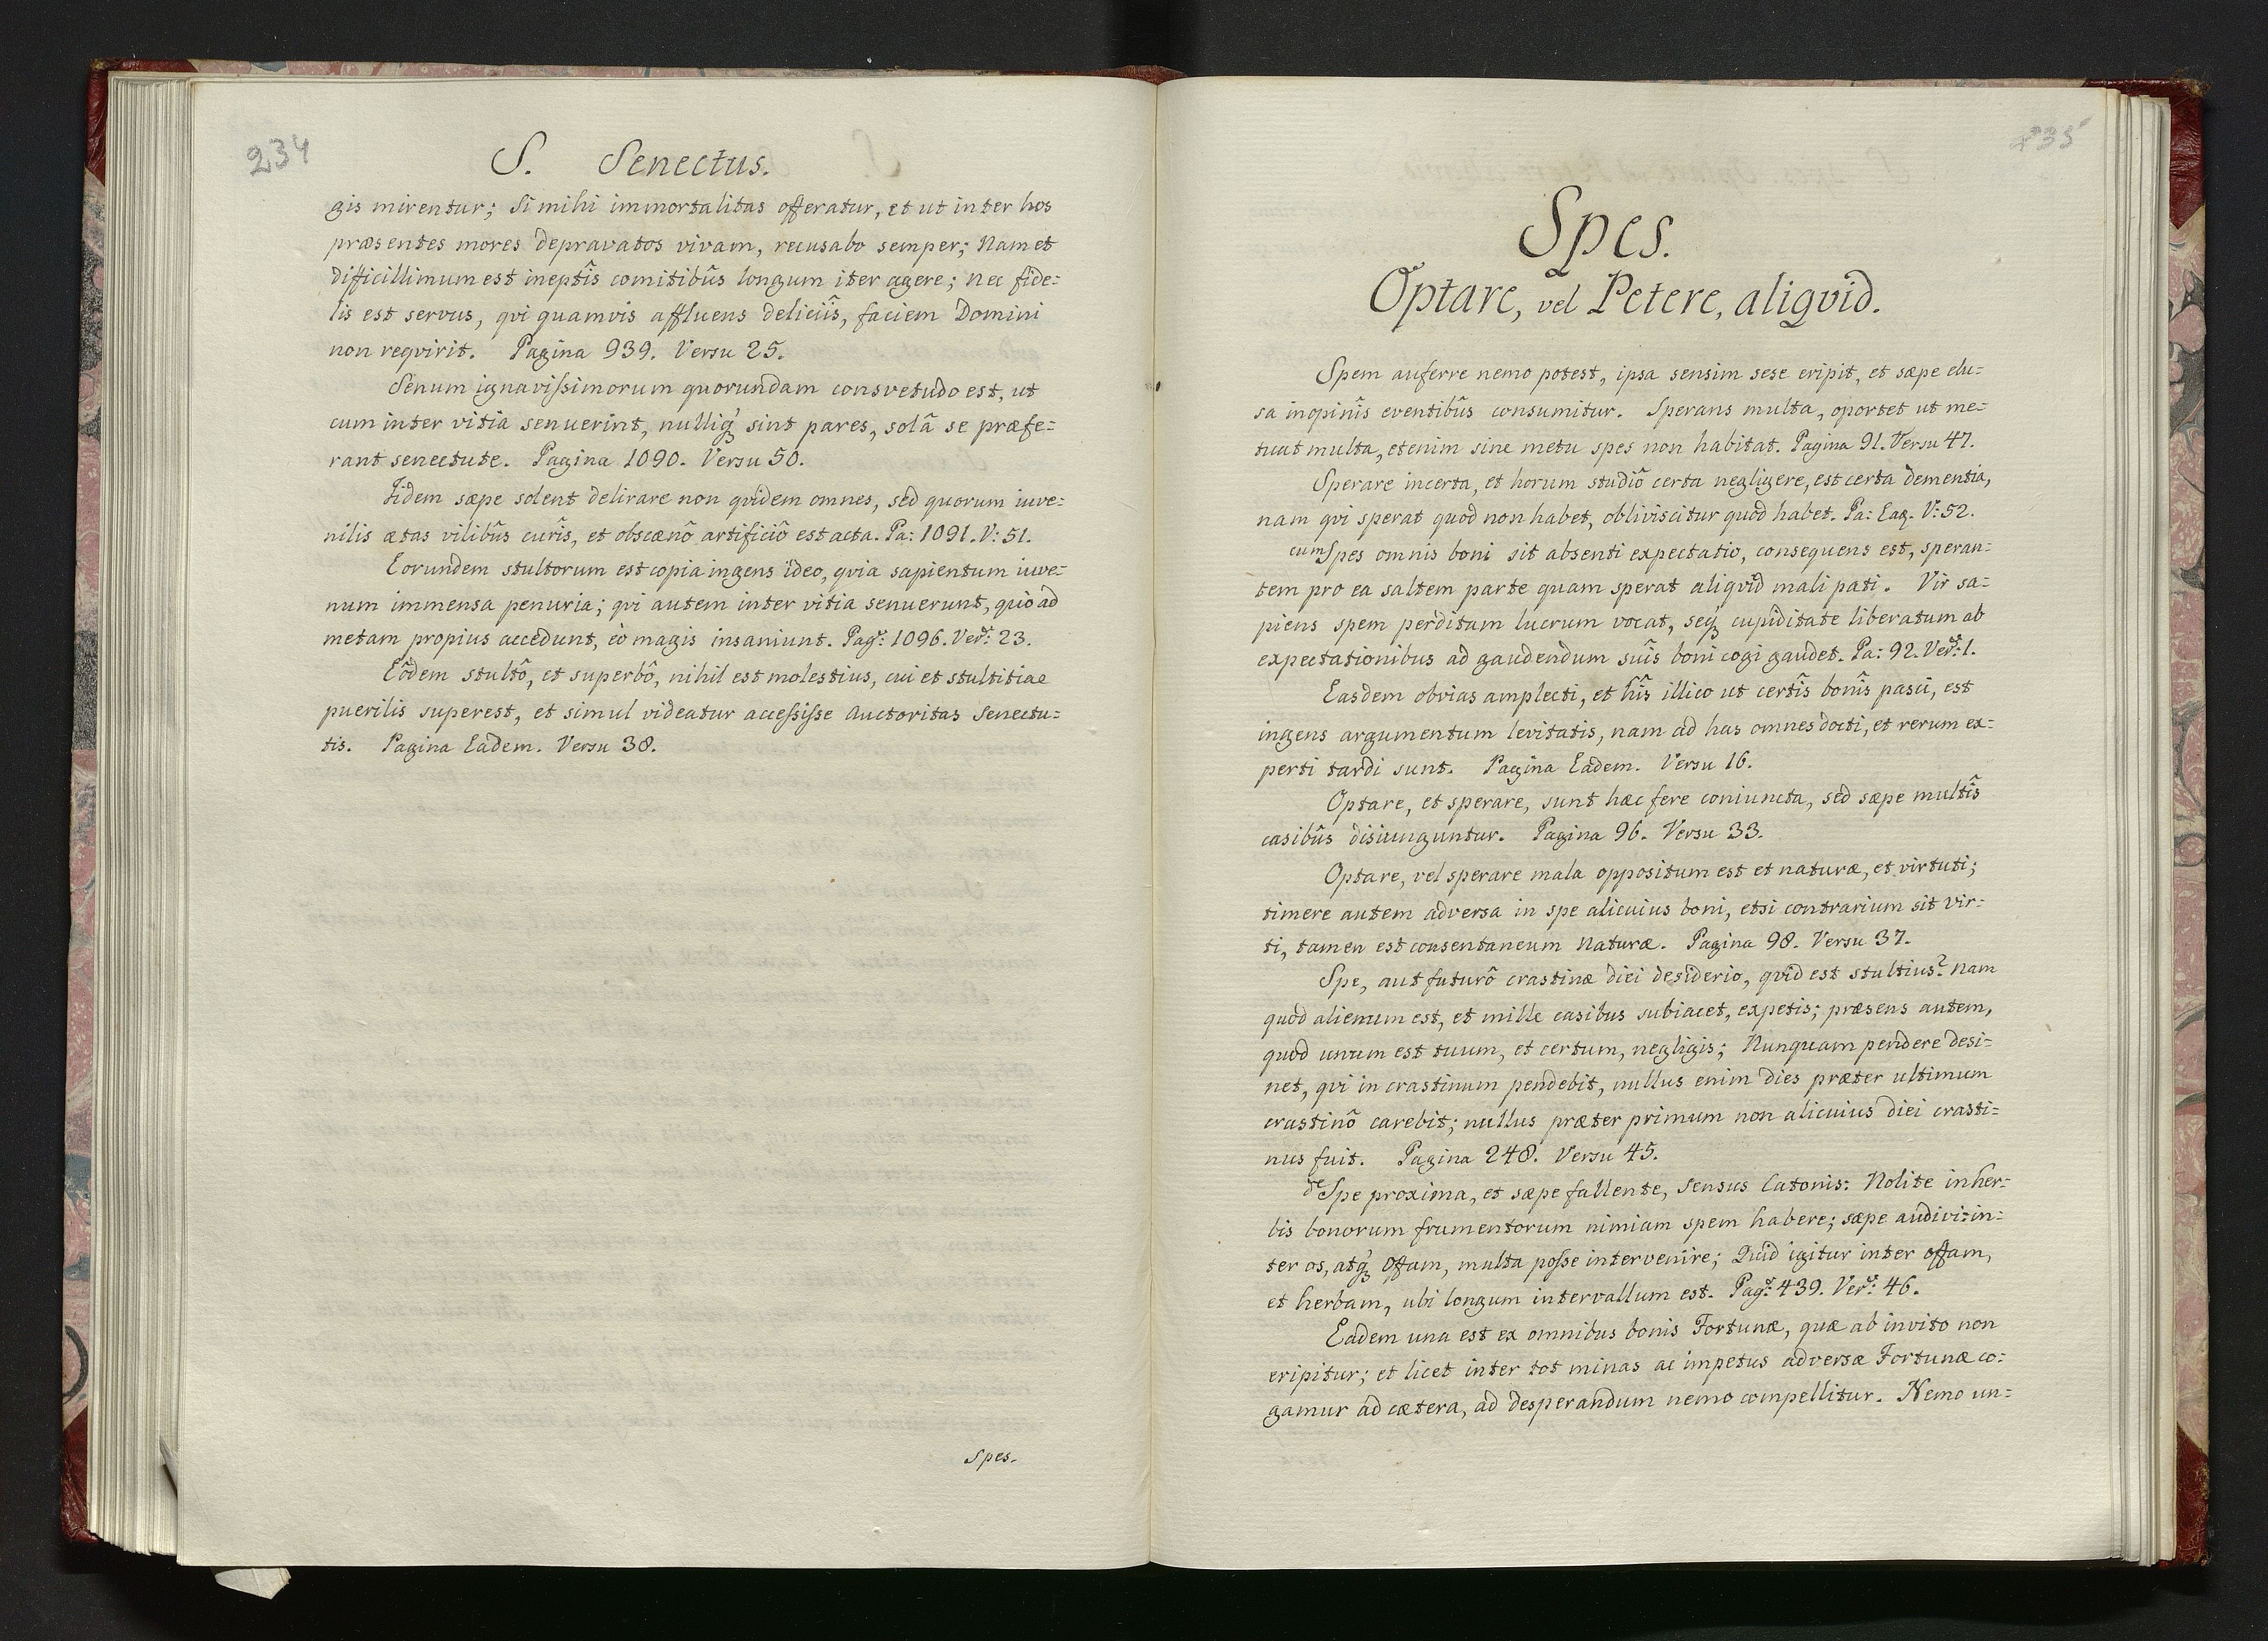 234
S. Senectus.
gis mirentur; Si mihi immortalitas offeratur, et ut inter hos
præsentes mores depravatos vivam, recusabo semper; Nam et
difficillimum est ineptîs comitibûs longum iter agere; nec fide=
lis est servus, qvi quamvis affluens deliciîs, faciem Domini
non reqvirit. Pagina 939. Versu 25.
Senum ignavissimorum quorundam consvetudo est, ut
cum inter vitia senuerint, nulliq́ꝫ sint pares, solâ se præfe=
rant senectute. Pagina 1090. Versu 50.
Iidem sæpe solent delirare non qvidem omnes, sed quorum iuve=
nilis ætas vilibûs curîs, et obscænô artificiô est acta. Pa: 1091. V: 51.
Eorundem stultorum est copia ingens ideo, qvia sapientum iuve=
num immensa penuria; qvi autem inter vitia senuerunt, quò ad
metam propius accedunt, eò magis insaniunt. Pag: 1096. Ver: 23.
Eôdem stultô, et superbô, nihil est molestius, cui et stultitiae
puerilis superest, et simul videatur accessisse Auctoritas Senectu=
tis. Pagina Eadem. Versu 38.
Spes.
235
Spes.
Optare, vel Petere, aliqvid.
Spem auferre nemo potest, ipsa sensim sese eripit, et sæpe elu=
sa inopinîs eventibûs consumitur. Sperans multa, oportet ut me=
tuat multa, etenim sine metu spes non habitat. Pagina 91. Versu 47.
Sperare incerta, et horum studiô certa negligere, est certa dementia,
nam qvi sperat quod non habet, obliviscitur quod habet. Pa: Ead. V: 52.
cum Spes omnis boni sit absenti expectatio, consequens est, speran=
tem pro ea saltem parte quam sperat aliqvid mali pati. Vir sa=
piens spem perditam lucrum vocat, seq́ꝫ cupiditate liberatum ab
expectationibus ad gaudendum suîs boni cogi gaudet. Pa: 92. Ver: 1.
Easdem obvias amplecti, et hîs illico ut certîs bonîs pasci, est
ingens argumentum levitatis, nam ad has omnes docti, et rerum ex=
perti tardi sunt. Pagina Eadem. Versu 16.
Optare, et sperare, sunt hæc fere coniuncta, sed sæpe multîs
casibûs disiunguntur. Pagina 96. Versu 33.
Optare, vel sperare mala oppositum est et naturæ, et virtuti;
timere autem adversa in spe alicuius boni, etsi contrarium sit vir=
ti, tamen est consentaneum Naturæ. Pagina 98. Versu 37.
Spe, aut futurô crastinæ diei desiderio, qvid est stultius? Nam
quod alienum est, et mille casibus subiacet, expetis; præsens autem,
quod unum est tuum, et certum, negligis; Nunquam pendere desi=
net, qvi in crastinum pendebit, nullus enim dies præter ultimum
crastinô carebit; nullus præter primum non alicuius diei crasti=
nus fuit. Pagina 248. Versu 45.
de Spe proxima, et sæpe fallente, Sensus Catonis: Nolite in her=
bis bonorum frumentorum nimiam spem habere; sæpe audivi: in=
ter os, atq́ꝫ Offam, multa posse intervenire; Quid igitur inter offam,
et herbam, ubi longum intervallum est. Pag: 439. Ver: 46.
Eadem una est ex omnibus bonis Fortunæ, quæ ab invito non
eripitur; et licet inter tot minas ac impetus adversæ Fortunæ co=
gamur ad cætera, ad desperandum nemo compellitur. Nemo un=